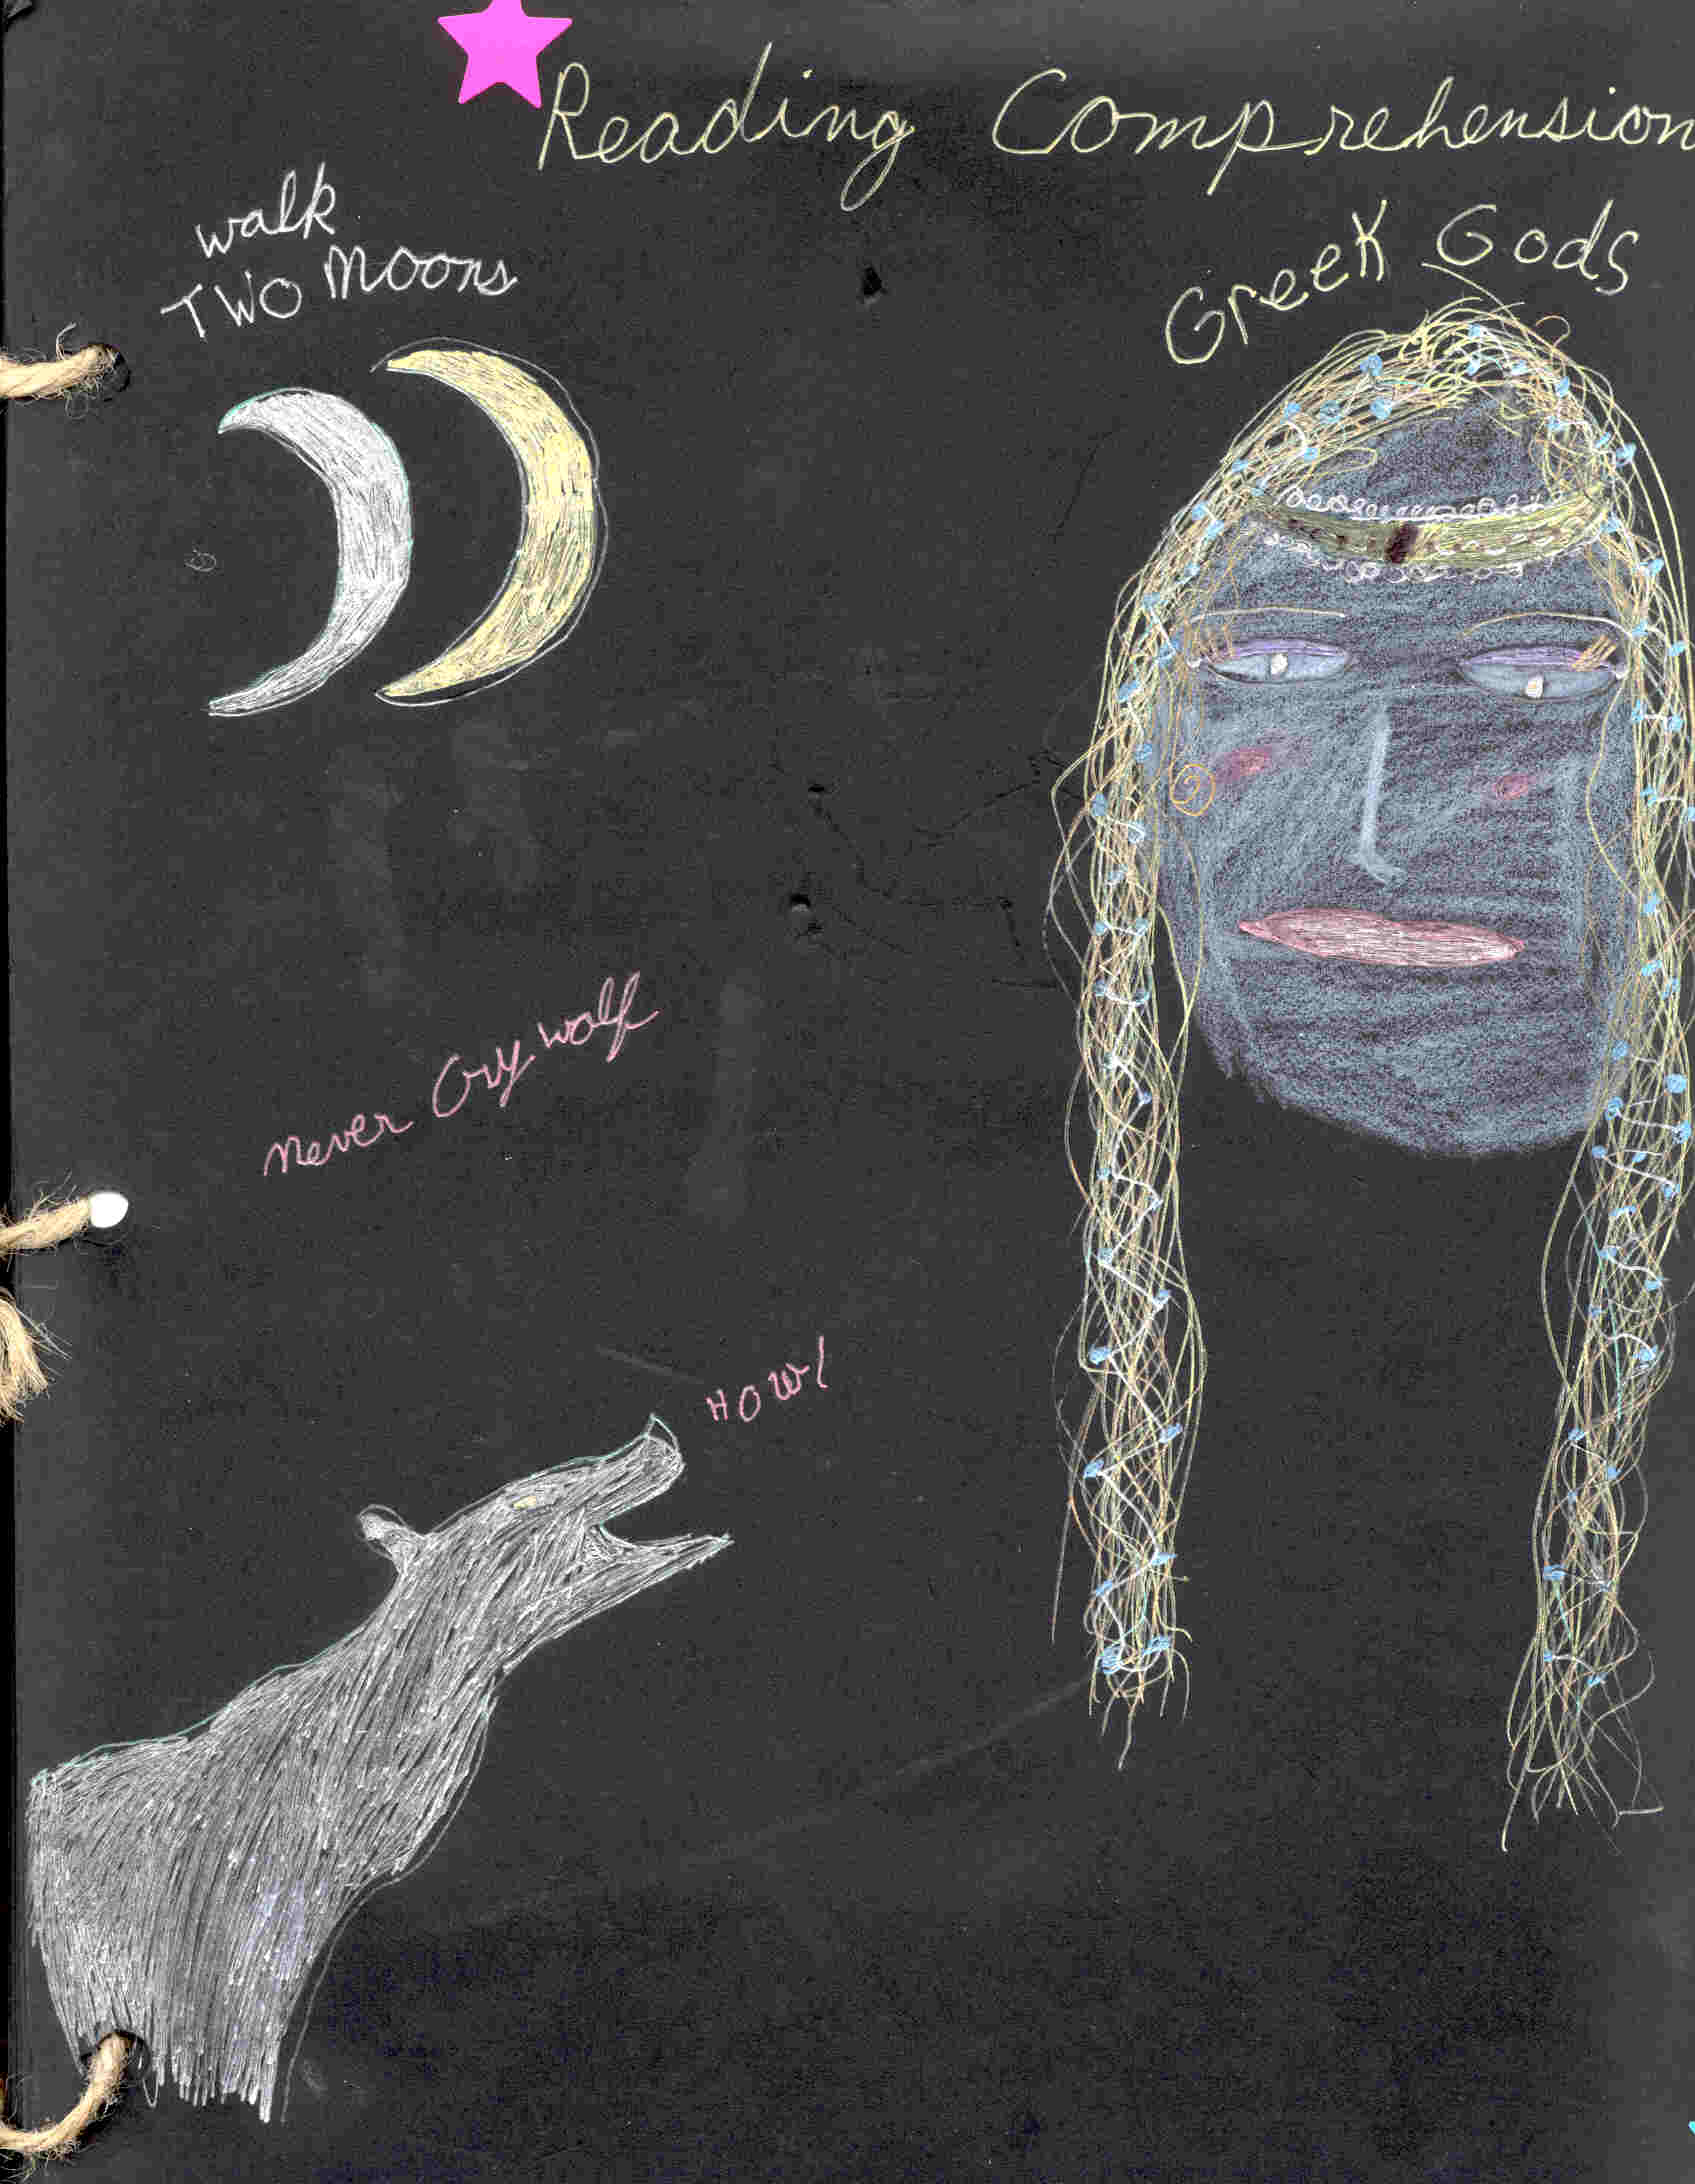 Reading Comprehension
walk
TWO Moons
Greek Gods
never Cry wolf
HOWl